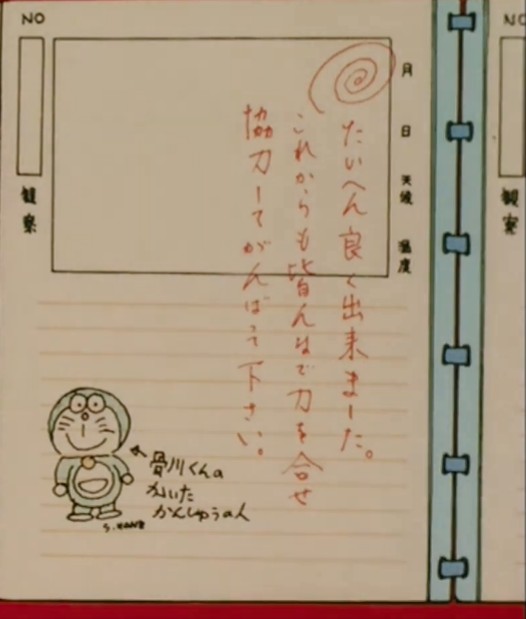 NO
NO
月
日
天候
温度
観察
観察
たいへん良く出来ました。
これからも皆んなで力を合せ
協力してがんばって下さい。
骨川くんの
かいた
かんしゅうの人